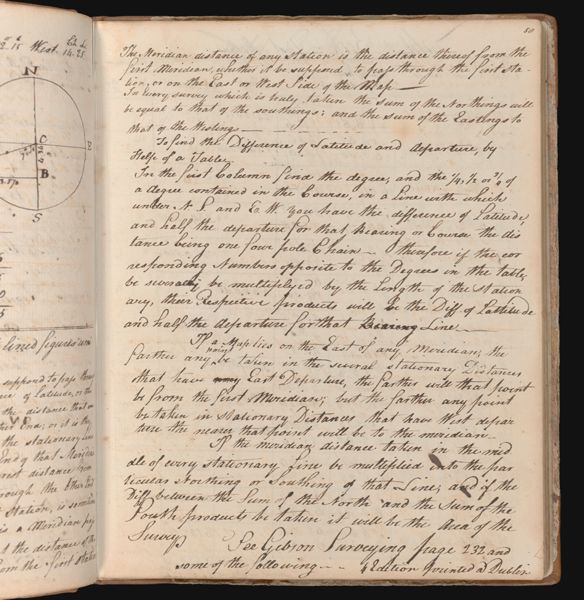 50
The Meridian distance of any Station is the distance thereof from the
first Meridian, whether it be supposed to pass through the first Sta-
tion, or on the East or West Side of the Map
In every survey which is truly taken the Sum of the Northings will
be equal to that of the southings; and the Sum of the Eastings to
that of the Westings
To find the Difference of Latitude and departure, by
Help of a Table
In the first Column find the degree, and the 1/4, 1/2 or 3/4 of
a degree contained in the Course, in a Line with which
under N. S. and E. W. you have the difference of Latitude
and half the departure for that Bearing or Course the dis
tance being one four pole Chain therefore if the cor
responding Numbers opposite to the Degrees in the table,
be severally multiplyed by the Length of the Station
ary, their Respetive products will be the Diff of Lattitude
and half the departure for that Bearing Line
If a Map lies on the East of any Meridian; the
farther any point be taken in the several Stationary Distances
that have East Departure, the farther will that point
be from the first Meridian; but the farther any point
be taken in Stationary Distances that have West depar
ture the nearer that point will be to the meridian
If the meridian distance taken in the mid
dle of every Stationary Line be multiplied into the par
ticular Northing or Southing of that Line; and if the
Diff between the Sum of the North and the Sum of the
South products be taken it will be the Area of the
Survey
See Gibson Surveying page 232 and
some of the following 4 Edition printed a Dublin
West Ch L
14.25
N
C
E
B
S
lined figures
supposed to pass through
of Latitude, or the
the distance that
End; or it is the
the stationary Line
End of that Meridian
distance from
through the other End
Station, is sometimes
is a Meridian
the distance of
from the first Station